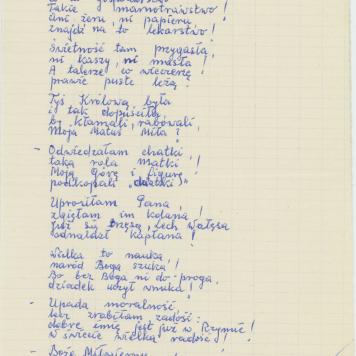 Takie marnotrawstwo!
ani żeru, ni papieru
znajdź na to lekarstwo!
Świetność tam przygasła,
ni kaszy, ni masła!
A talerze co wieczerzę
prawie puste leżą!
Tyś Królową była
i tak dopuściła,
by kłamali, rabowali,
Moja Matuś Miła?
- Odwiedzałam chatki,
taka rola Matki!
Moją Górę i figurę
podkopali "dziatki"
Uprosiłam Pana,
zgięłam im kolana!
Już się trzęsą, Lech Wałęsa
odnalazł kapłana!
Wielka to nauka,
naród Boga szuka!
Bo bez Boga ni do proga,
dziadek uczył wnuka!
- Upada moralność,
lecz zrobiłam zadość:
dobre imię jest już w Rzymie!
w świecie wielka radość!
Boże Miłosierny